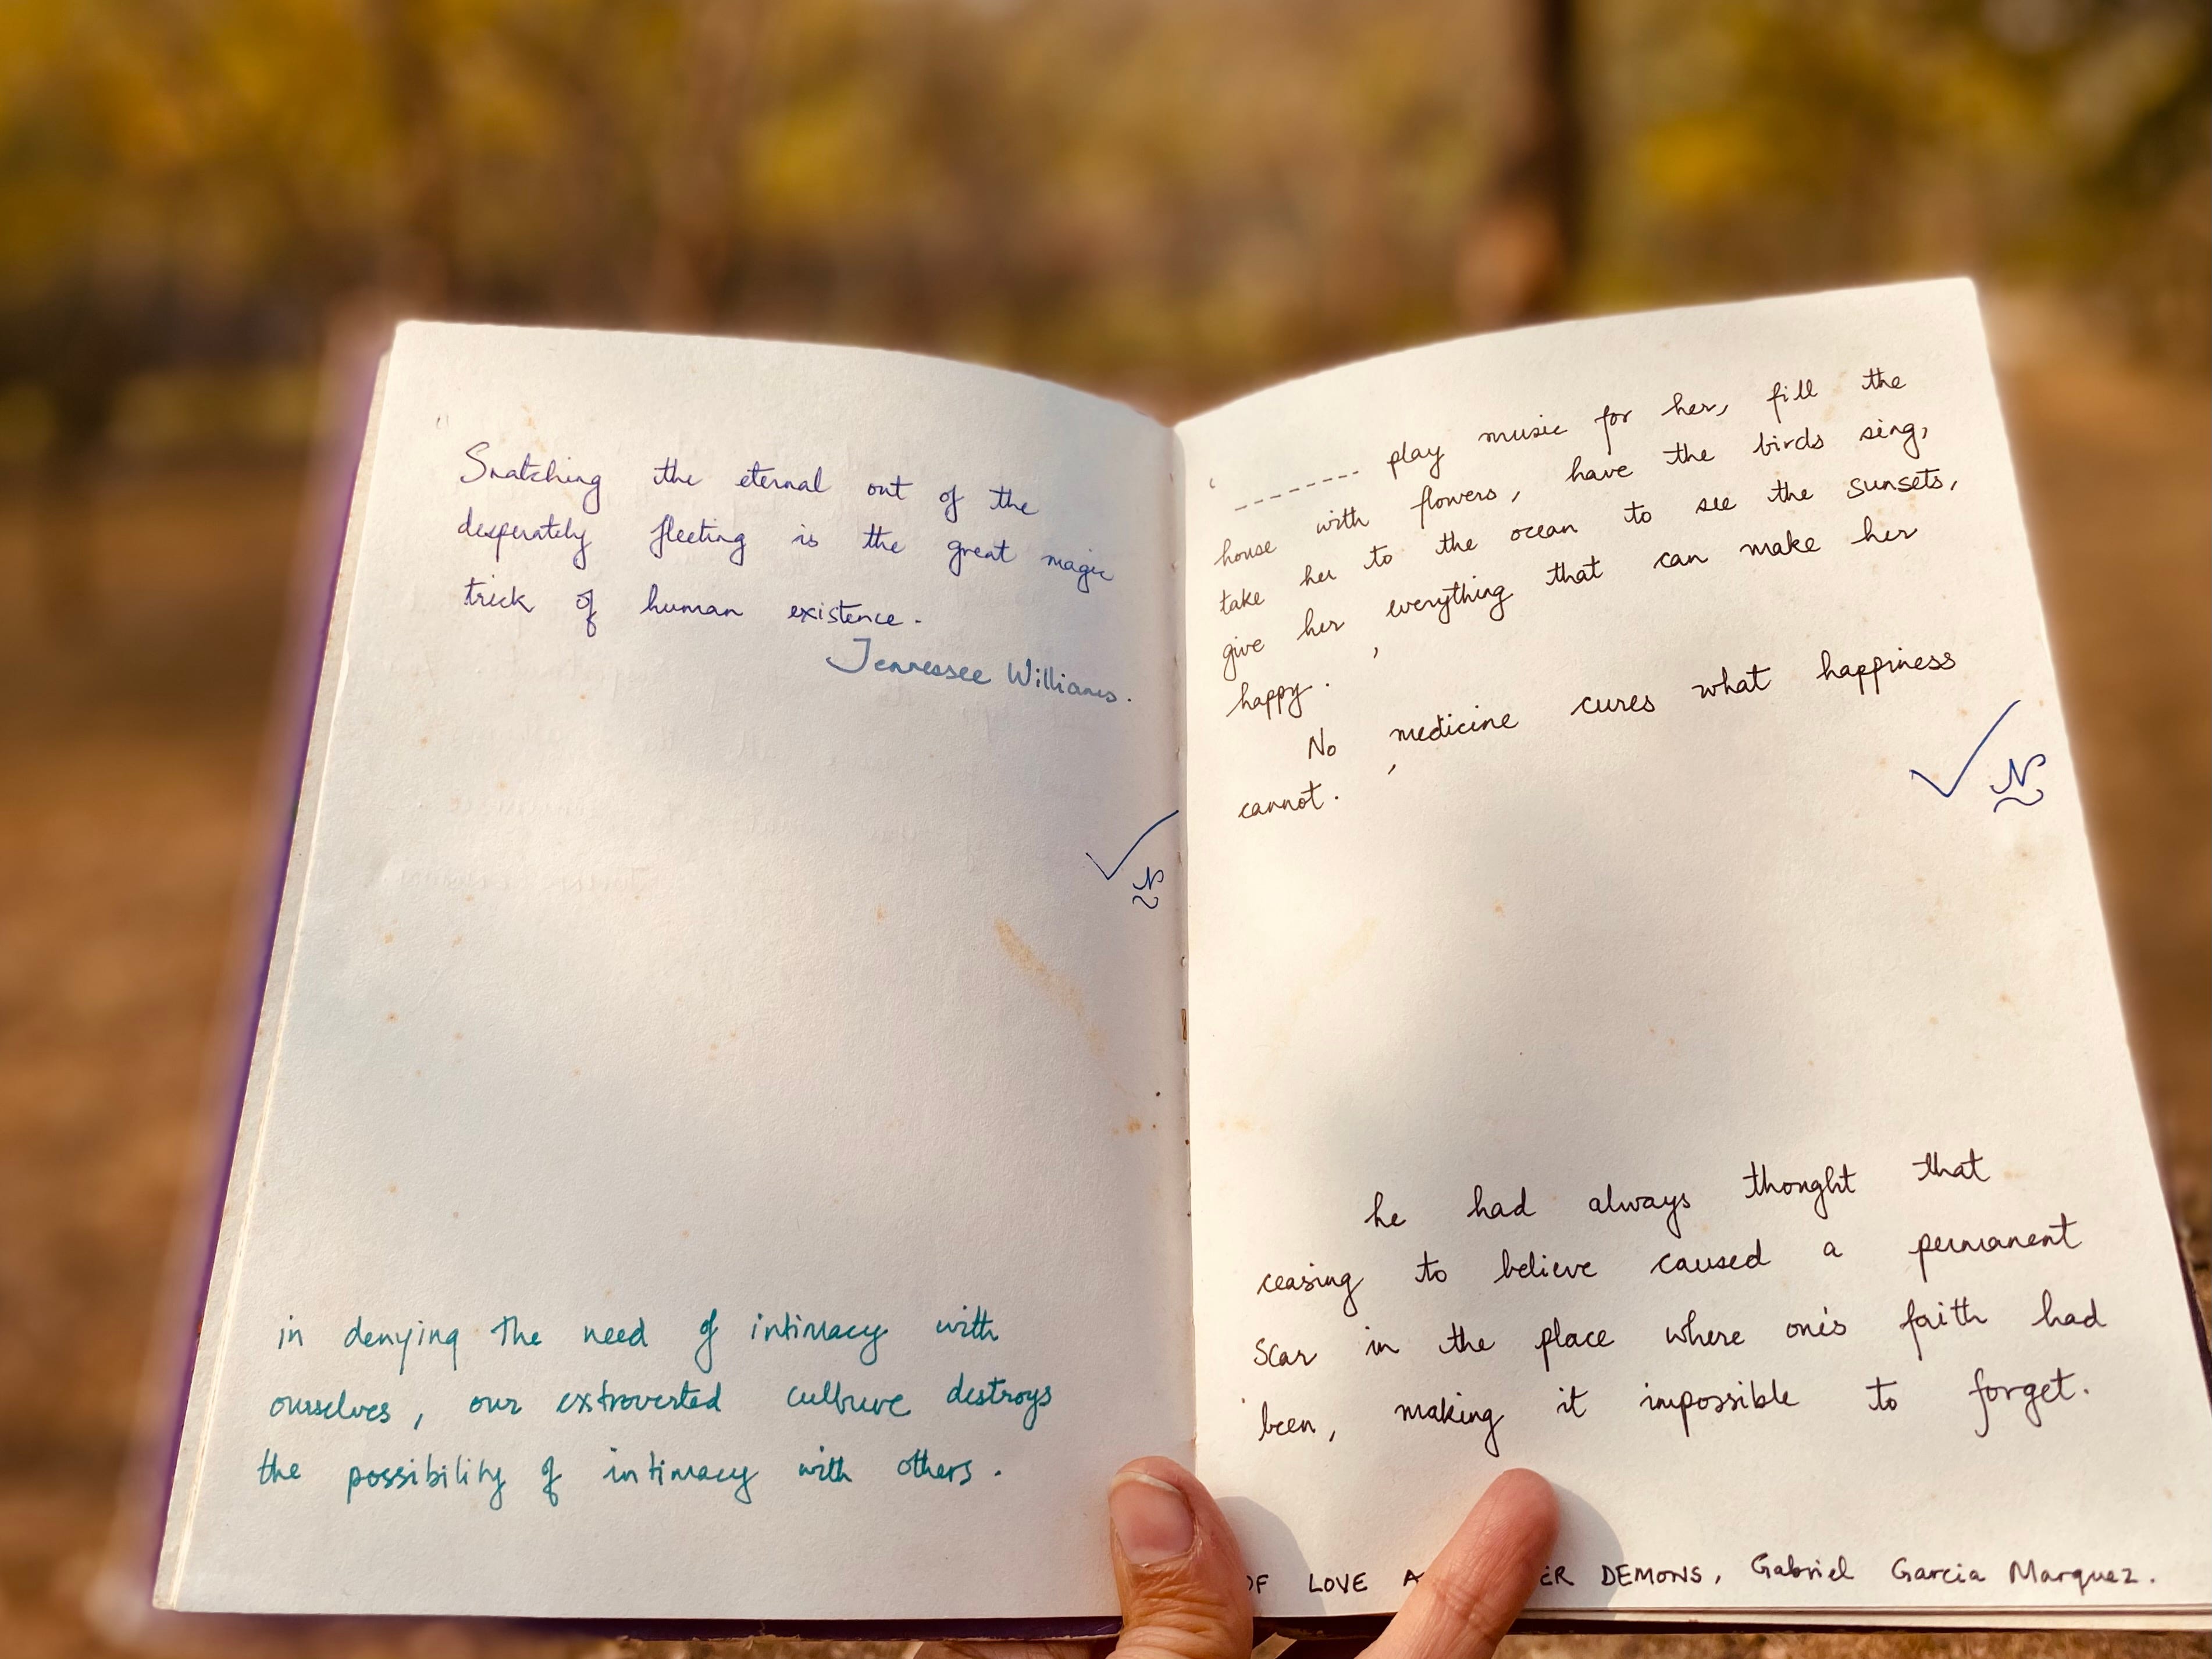 Snatching the eternal out of the
desperately fleeting is the great magic
trick of human existence.
Tennessee Williams.
N
in denying the need of intimacy with
ourselves, our extroverted culture destroys
the possibility of intimacy with others.
------- play music for her, fill the
house with flowers, have the birds sing,
take her to the ocean to see the sunsets,
give her everything that can make her
happy.
No medicine cures what happiness
cannot.
N
he had always thought that
ceasing to believe caused a permanent
scar in the place where one's faith had
been, making it impossible to forget.
OF LOVE DEMONS, Gabriel Garcia Marquez.